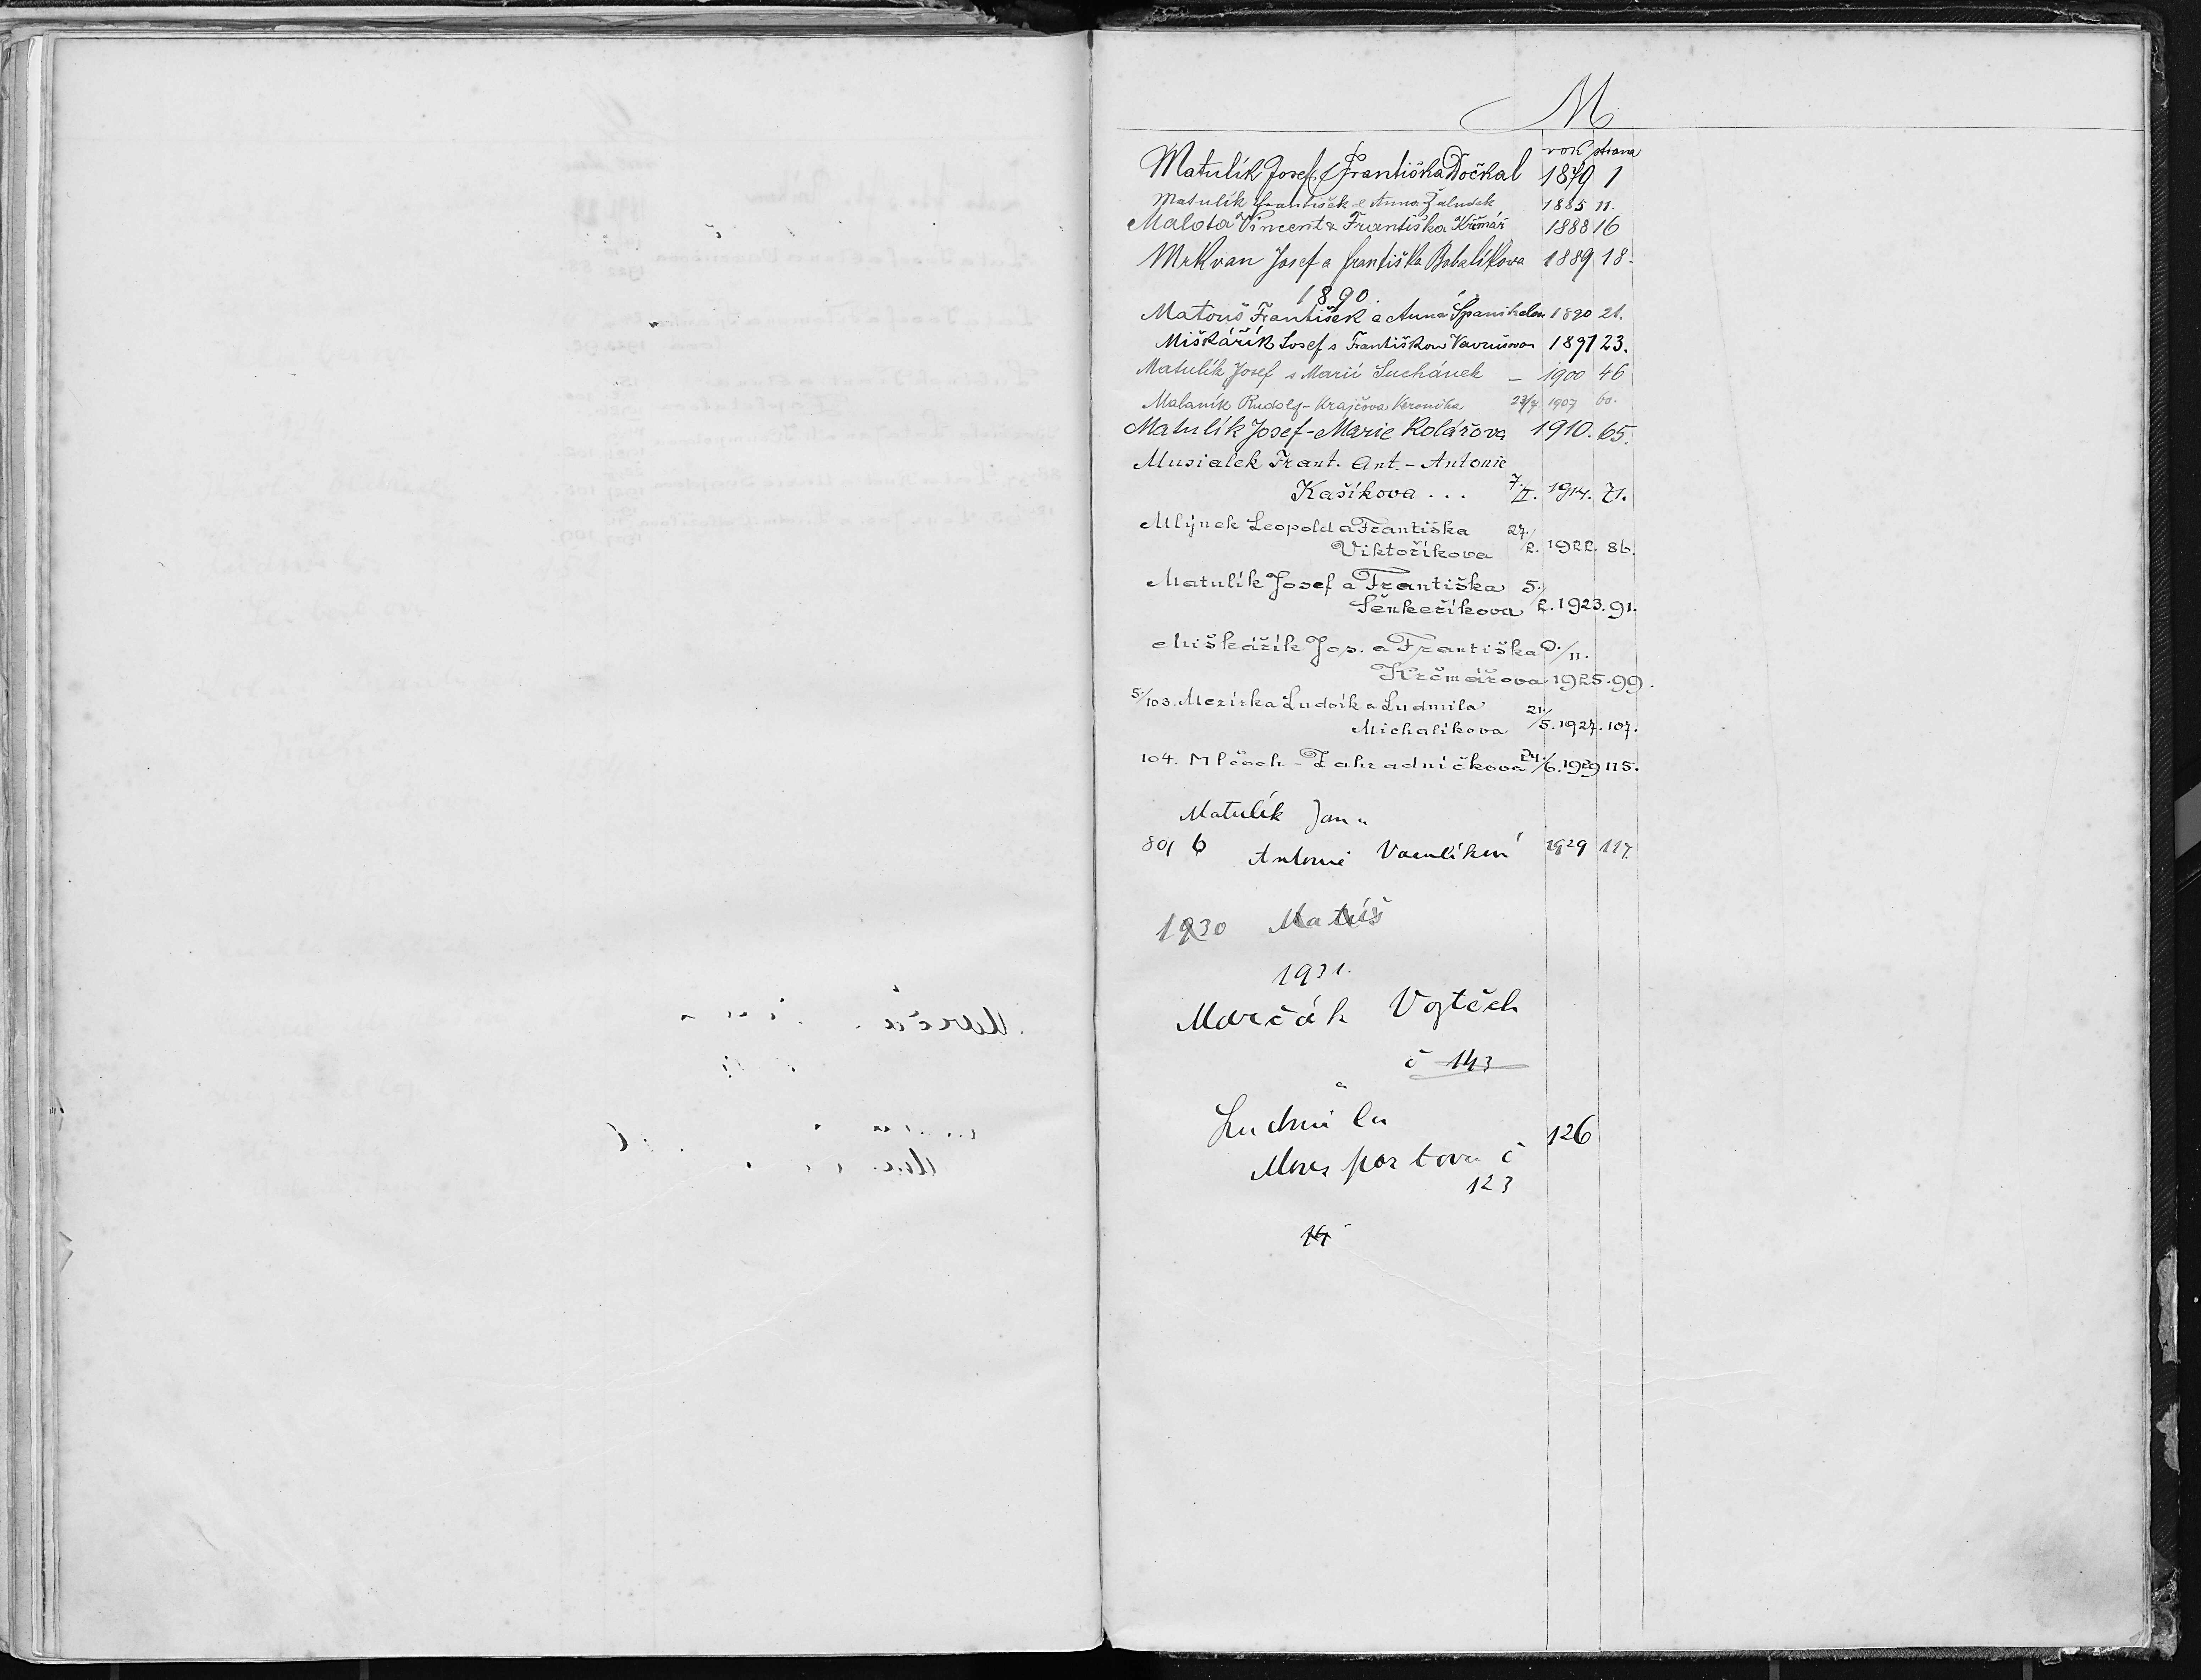 M
rok strana
Matulík Josef & Františka Dočkal 1879 1
Matulík František & Anna Žaludek 1885 11.
Malota Vincent & Františka Krčmář 1888 16
Mrkvan Josef a Františka Bobalíkova 1889 18.
1890.
Matouš František a Anna Španihelova 1890 21.
Miškářík Josef s Františkou Vavrušovou 1891 23.
Matulík Josef s Marií Suchánek – 1900 46
Malaník Rudolf - Krajčova Veronika 23/4. 1907 60.
Matulík Josef - Marie Kolářova 1910. 65.
Musialek Frant. Ant. - Antonie
Kašíkova . . . 7./II. 1914. 71.
Mlýnek Leopold a Františka 27./
Viktoříkova 2. 1922. 86.
Matulík Josef a Františka 5./
Šenkeříkova 2. 1923. 91.
Miškářík Jos. a Františka /11.
Krčmářova 1925. 99.
5./103. Mezírka Ludvík a Ludmila 21./
Michalíkova 5. 1927. 107.
104. Mlčoch - Zahradníčkova 24./6. 1929 115.
Matulík Jan a
6 Antonie 1929 117.
1930 Matúš
1931.
Marčák Vojtěch
č 143
a
Ludmila 126
č
123